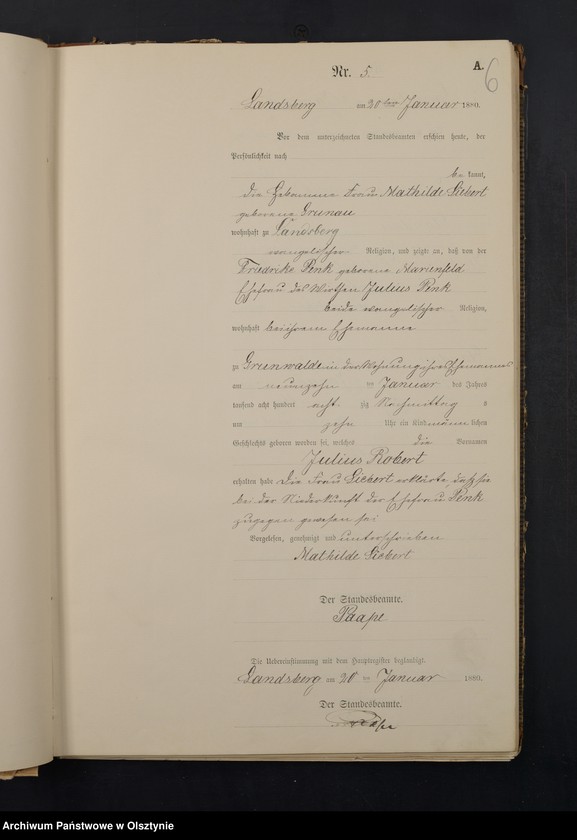 A.
6
Nr. 5.
Landsberg am 20ten Januar 1880.
Vor dem unterzeichneten Standesbeamten erschien heute, der
Persönlichkeit nach
be kannt,
die Hebamme Frau Mathilde Siebert
geborene Grunau
wohnhaft zu Landsberg
evangelischer Religion, und zeigte an, daß von der
Friedrike Penk geborene Marienfeld
Ehefrau des Wirthen Julius Penk
beide evangelischer Religion,
wohnhaft bei ihrem Ehemanne
zu Grünwalde in der Wohnung ihres Ehemannes
am neunzehn ten Januar des Jahres
tausend acht hundert acht zig Nachmittag s
um zehn Uhr ein Kind männ lichen
Geschlechts geboren worden sei, welches die Vornamen
Julius Robert
erhalten habe Die Frau Siebert erklärte daß sie
bei der Niederkunft der Ehefrau Penk
zugegen gewesen sei
Vorgelesen, genehmigt und unterschrieben
Mathilde Siebert
Der Standesbeamte.
Paape
Die Uebereinstimmung mit dem Hauptregister beglaubigt.
Landsberg am 20 ten Januar 1880.
Der Standesbeamte.
Paape
Archiwum Państwowe w Olsztynie